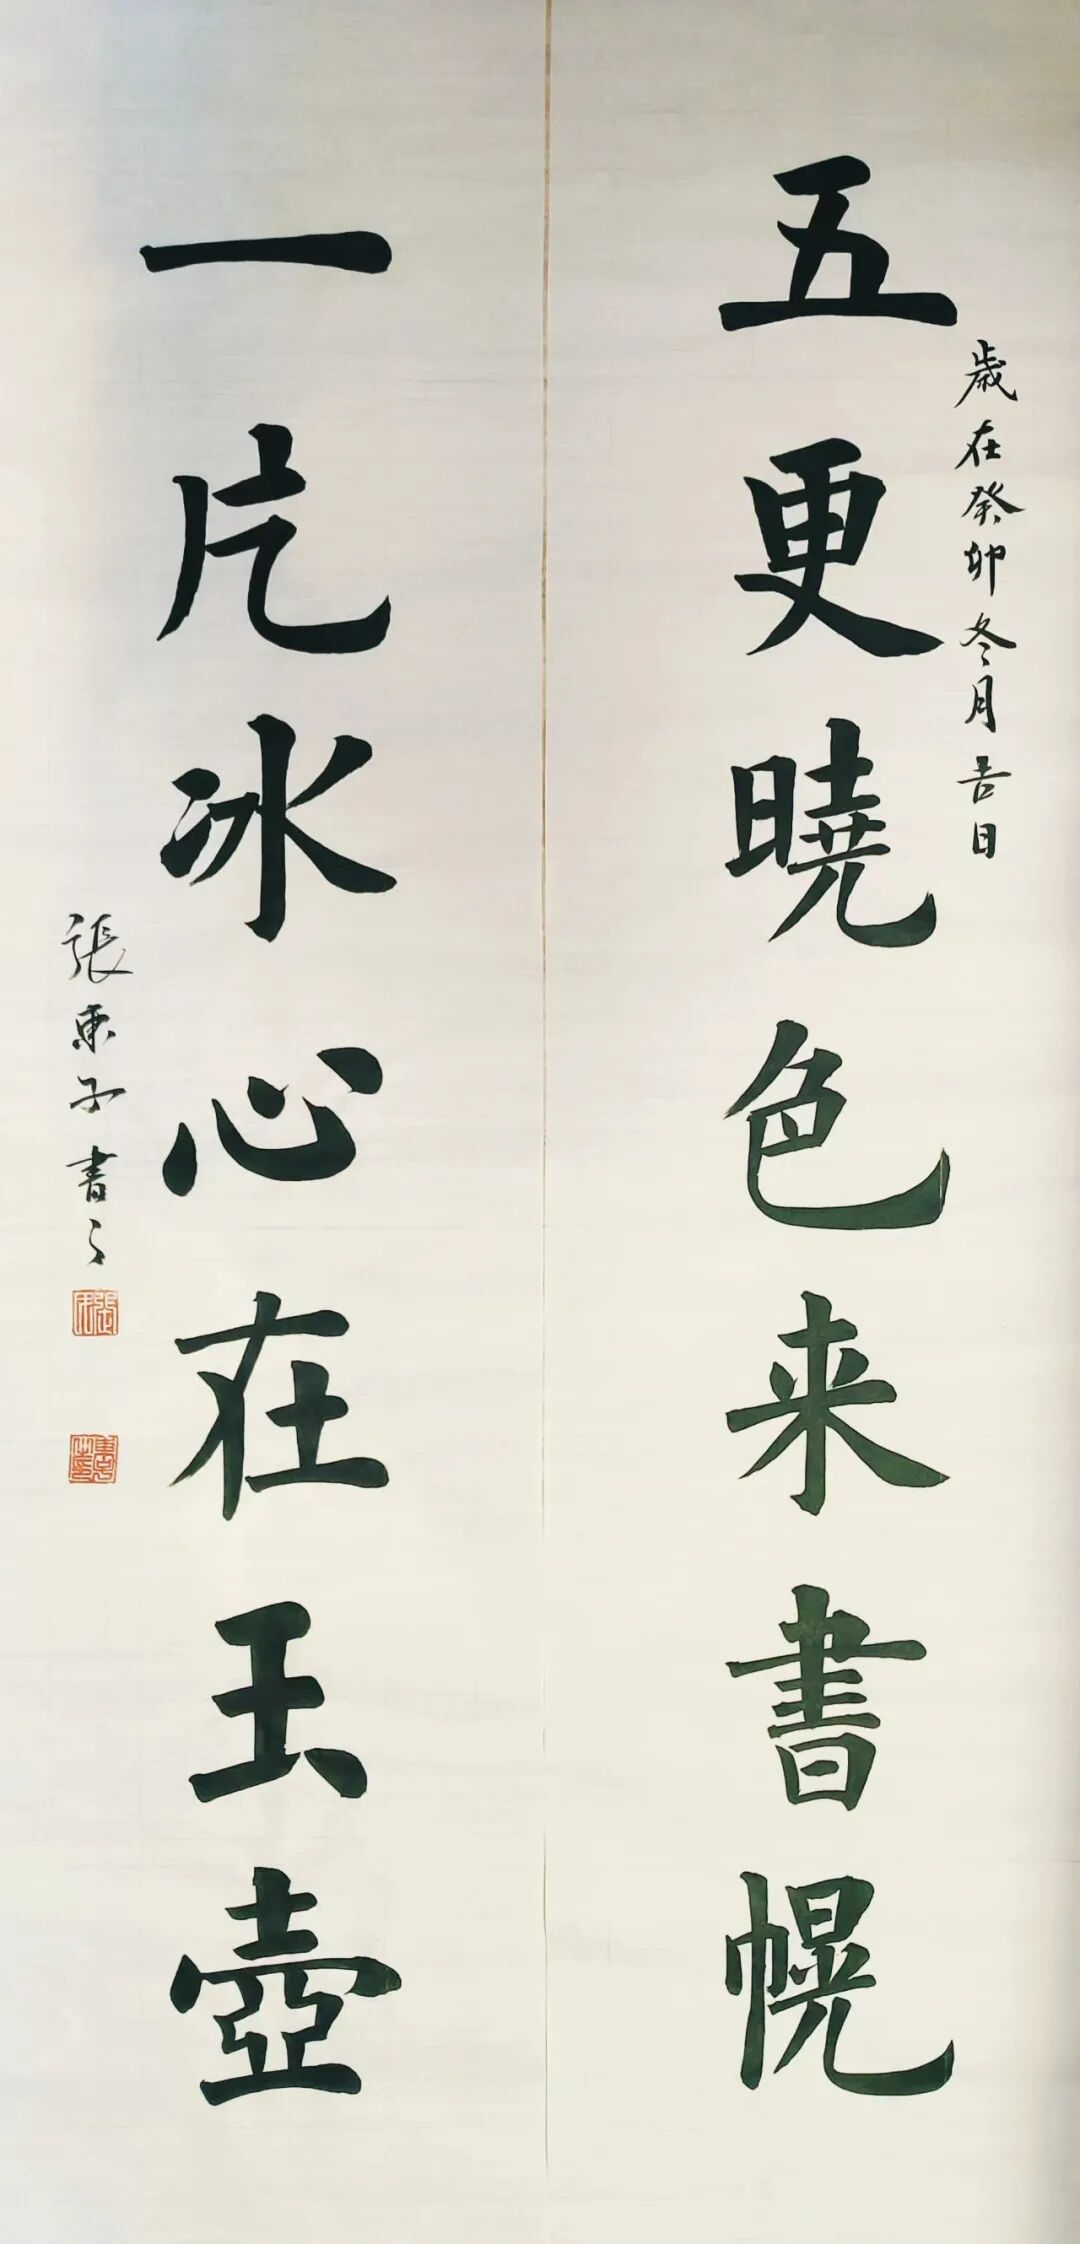 五更曉色来書幌
歲在癸卯冬月吉日
一片冰心在玉壺
張東子書之